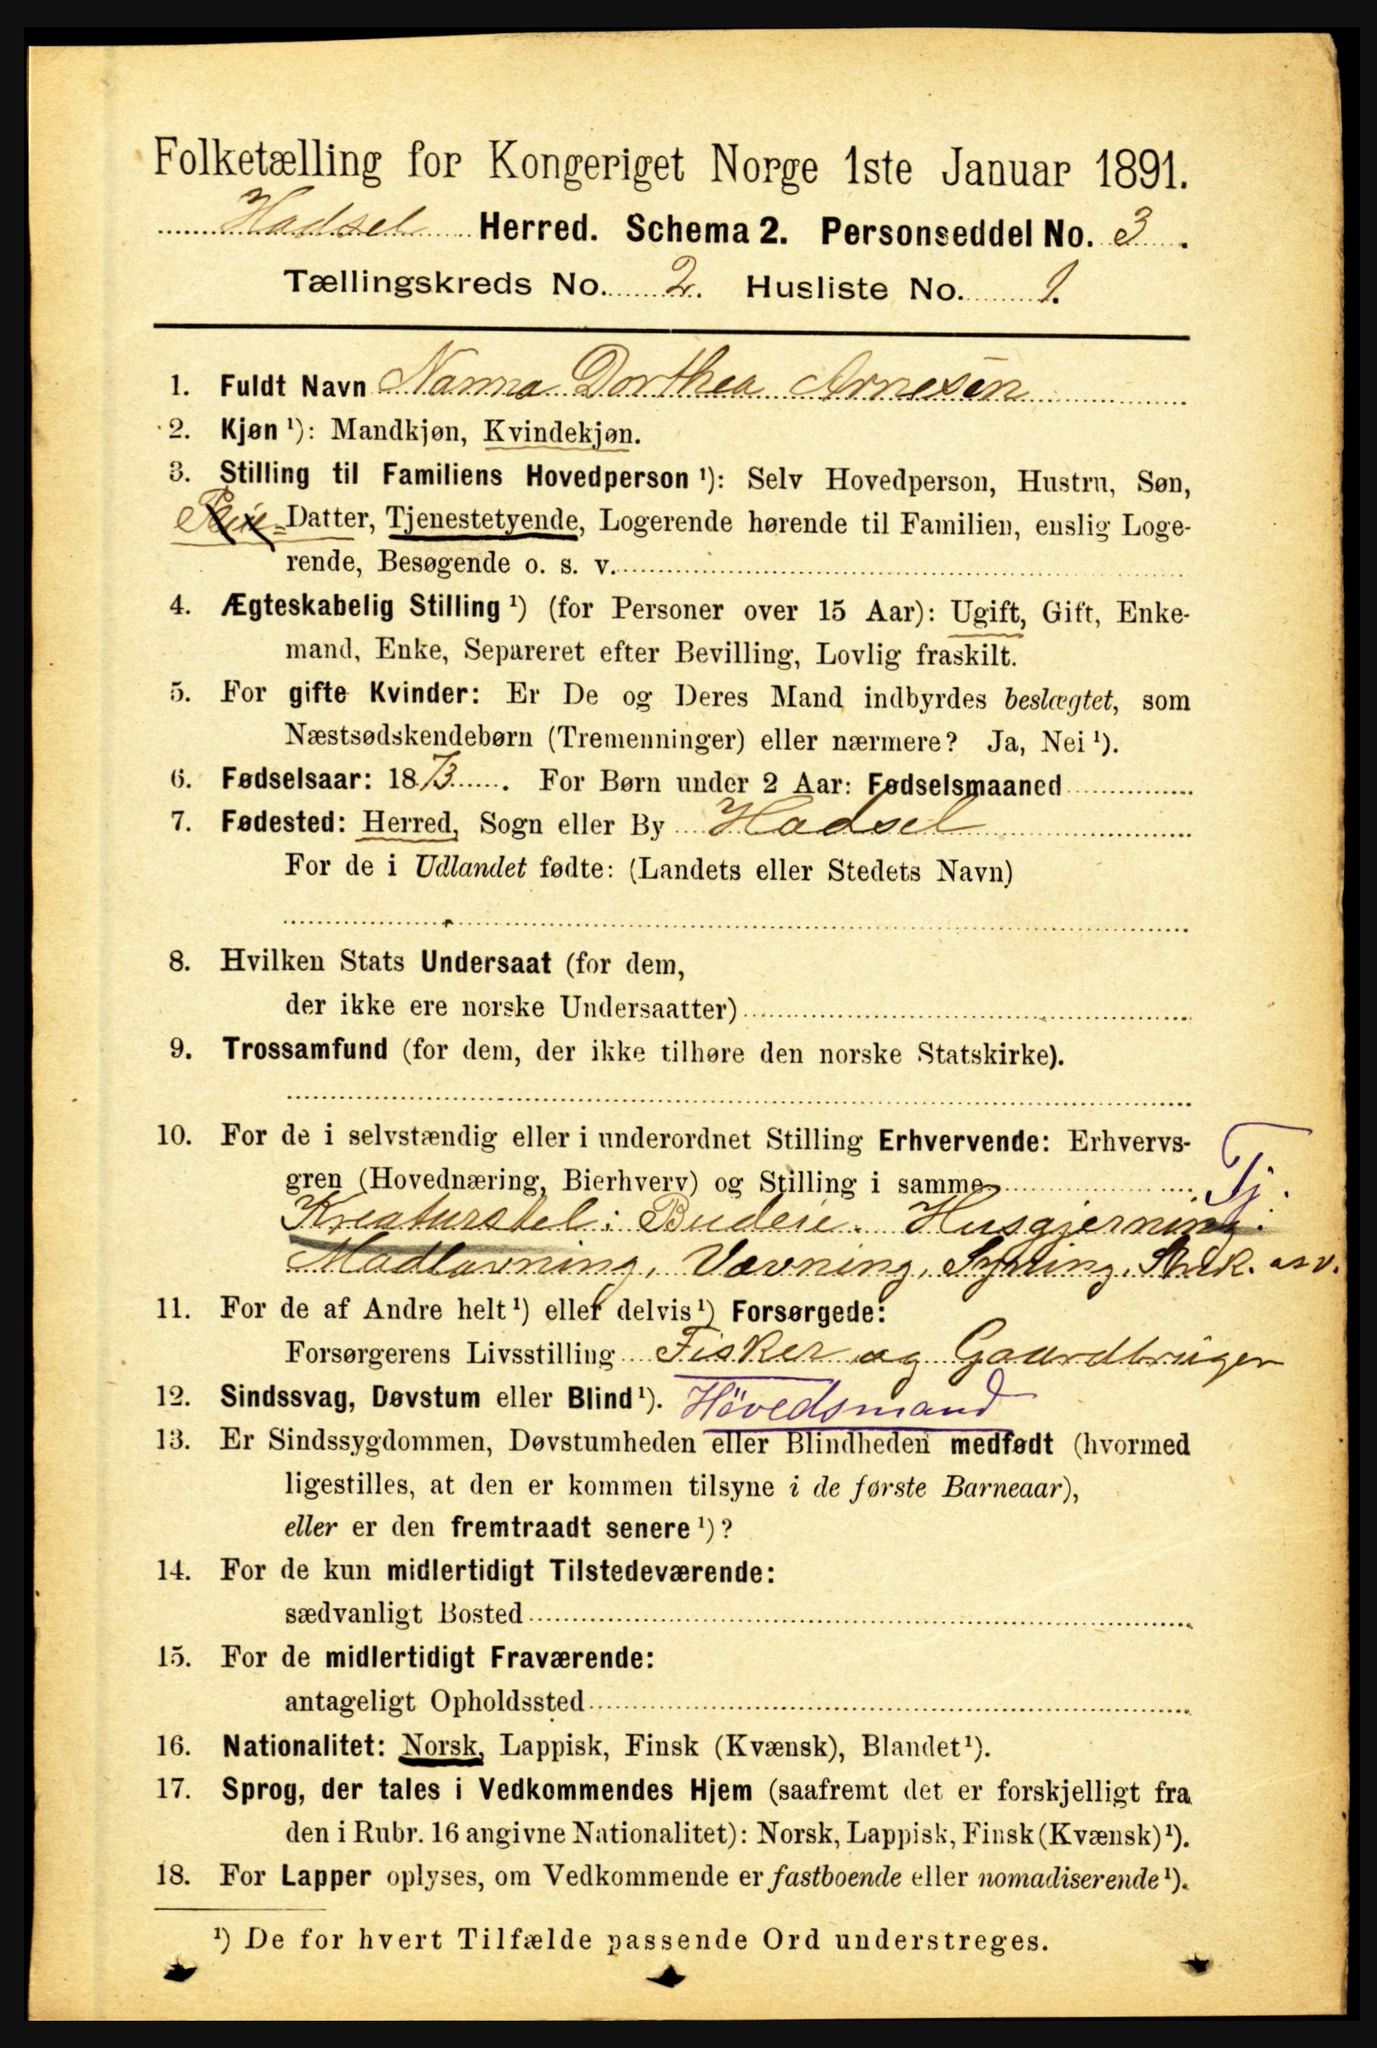 Folketælling for Kongeriget Norge 1ste Januar 1891.
Hadsel Herred. Schema 2. Personseddel No. 3.
Tællingskreds No. 2. Husliste No. 1.
1. Fuldt Navn Nanna Dorthea Arnesen
2. Kjøn ¹): Mandkjøn, Kvindekjøn.
3. Stilling til Familiens Hovedperson ¹): Selv Hovedperson, Hustru, Søn,
Datter, Tjenestetyende, Logerende hørende til Familien, enslig Loge-
rende, Besøgende o. s. v.
4. Ægteskabelig Stilling ¹) (for Personer over 15 Aar): Ugift, Gift, Enke-
mand, Enke, Separeret efter Bevilling, Lovlig fraskilt.
5. For gifte Kvinder: Er De og Deres Mand indbyrdes beslægtet, som
Næstsødskendebørn (Tremenninger) eller nærmere? Ja, Nei ¹).
6. Fødselsaar: 1873. For Børn under 2 Aar: Fødselsmaaned
7. Fødested: Herred, Sogn eller By Hadsel
For de i Udlandet fødte: (Landets eller Stedets Navn)
8. Hvilken Stats Undersaat (for dem,
der ikke ere norske Undersaatter)
9. Trossamfund (for dem, der ikke tilhøre den norske Statskirke).
10. For de i selvstændig eller i underordnet Stilling Erhvervende: Erhvervs-
gren (Hovednæring, Bierhverv) og Stilling i samme Tj.
Kreaturstel: Budeie. Husgjerning:
Madlavning, Vævning, Syning, Strik. osv.
11. For de af Andre helt ¹) eller delvis ¹) Forsørgede:
Forsørgerens Livsstilling Fisker og Gaardbruger
12. Sindssvag, Døvstum eller Blind ¹). Høvedsmand
13. Er Sindssygdommen, Døvstumheden eller Blindheden medfødt (hvormed
ligestilles, at den er kommen tilsyne i de første Barneaar),
eller er den fremtraadt senere ¹)?
14. For de kun midlertidigt Tilstedeværende:
sædvanligt Bosted
15. For de midlertidigt Fraværende:
antageligt Opholdssted
16. Nationalitet: Norsk, Lappisk, Finsk (Kvænsk), Blandet ¹).
17. Sprog, der tales i Vedkommendes Hjem (saafremt det er forskjelligt fra
den i Rubr. 16 angivne Nationalitet): Norsk, Lappisk, Finsk (Kvænsk) ¹).
18. For Lapper oplyses, om Vedkommende er fastboende eller nomadiserende ¹).
¹) De for hvert Tilfælde passende Ord understreges.